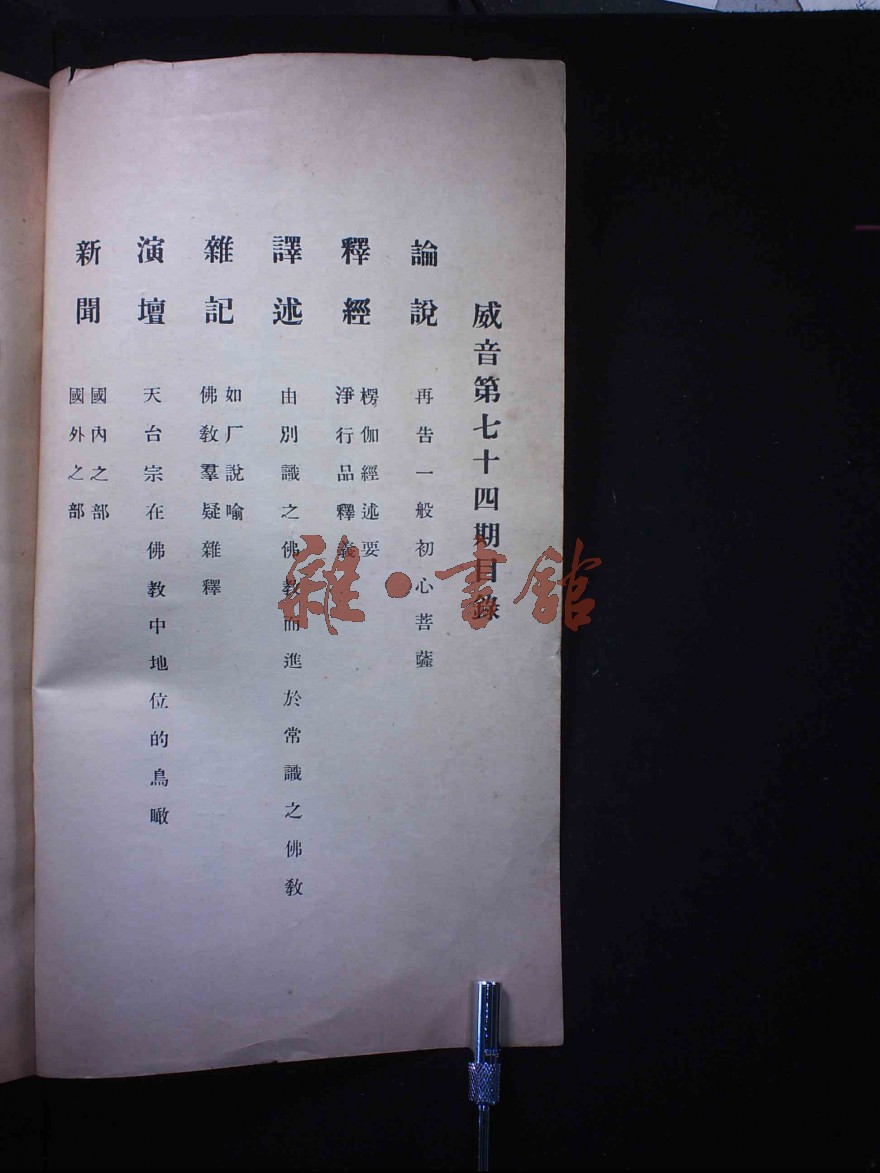 威音第七十四期目錄
論說
再告一般初心菩薩
釋經
楞伽經述要
淨行品釋義
譯述
由別識之佛教而進於常識之佛教
雜記
如厂說喻
佛教羣疑雜釋
演壇
天台宗在佛教中地位的鳥瞰
新聞
國內之部
國外之部
雜·書館